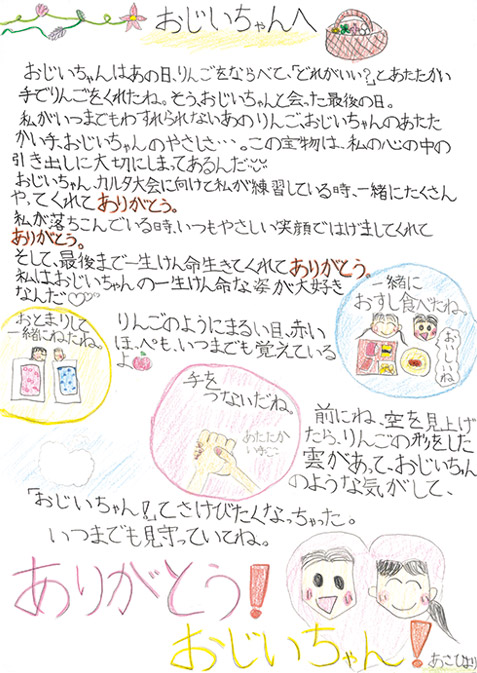 おじいちゃんへ
おじいちゃんはあの日、りんごをならべて、「どれがいい?」とあたたかい
手でりんごをくれたね。そう、おじいちゃんと会った最後の日。
私がいつまでもわすれられないあのりんご、おじいちゃんのあたた
かい手、おじいちゃんのやさしさ…。この宝物は、私の心の中の
引き出しに大切にしまってあるんだ
おじいちゃん、カルタ大会に向けて私が練習している時、一緒にたくさん
やってくれてありがとう。
私が落ちこんでいる時、いつもやさしい笑顔ではげましてくれて
ありがとう。
そして、最後まで一生けん命生きてくれてありがとう。
私はおじいちゃんの一生けん命な姿が大好き
なんだ♡
一緒に
おすし食べたね。
おいしいね
おとまりして
一緒にねたね。
りんごのようにまるい目、赤い
ほっぺも、いつまでも覚えている
よ
手を
つないだね。
あたたか
い手
前にね、空を見上げ
たら、りんごの形をした
雲があって、おじいちゃん
のような気がして、
「おじいちゃん!」てさけびたくなっちゃった。
いつまでも見守っていてね。
ありがとう!
おじいちゃん!